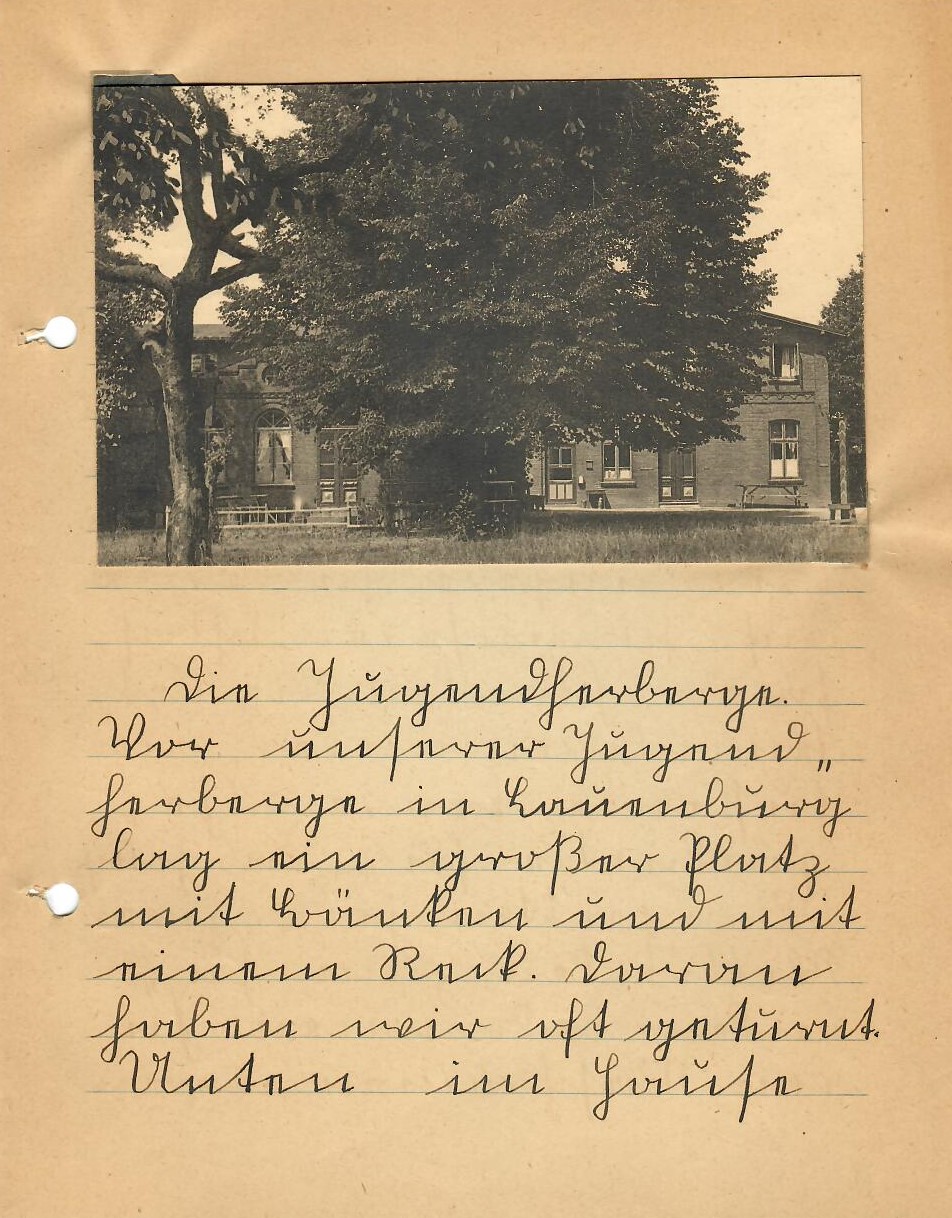 Die Jugendherberge.
Vor unserer Jugend„
herberge in Lauenburg
lag ein großer Platz
mit Bänken und mit
einem Reck. Daran
haben wir oft geturnt.
Unten im Hause